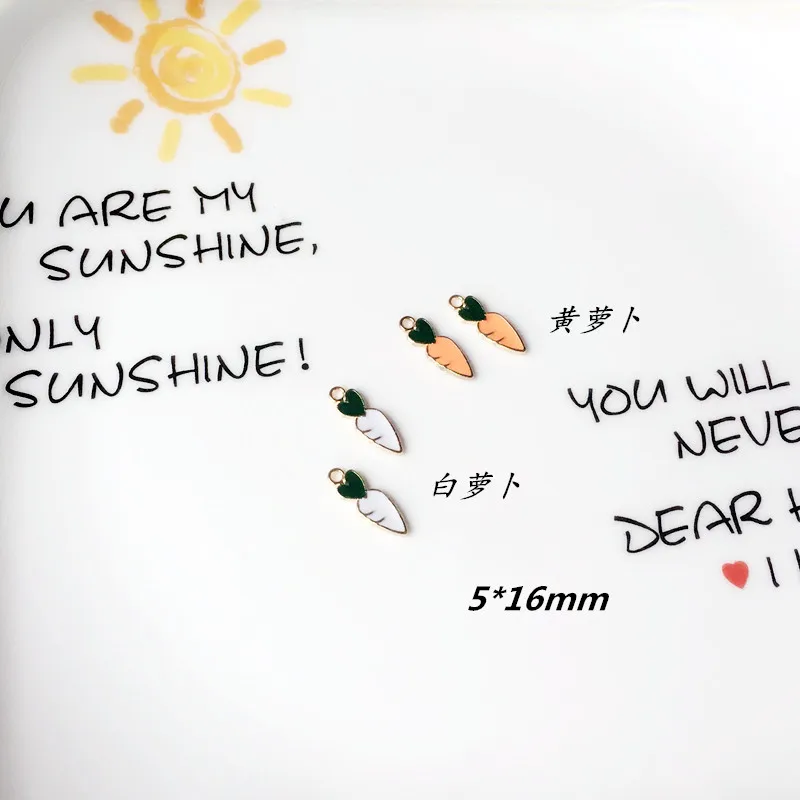 U ARE MY
SUNSHINE,
NLY
SUNSHINE!
黄萝卜
白萝卜
YOU WILL
NEVE
DEAR H
I
5*16mm